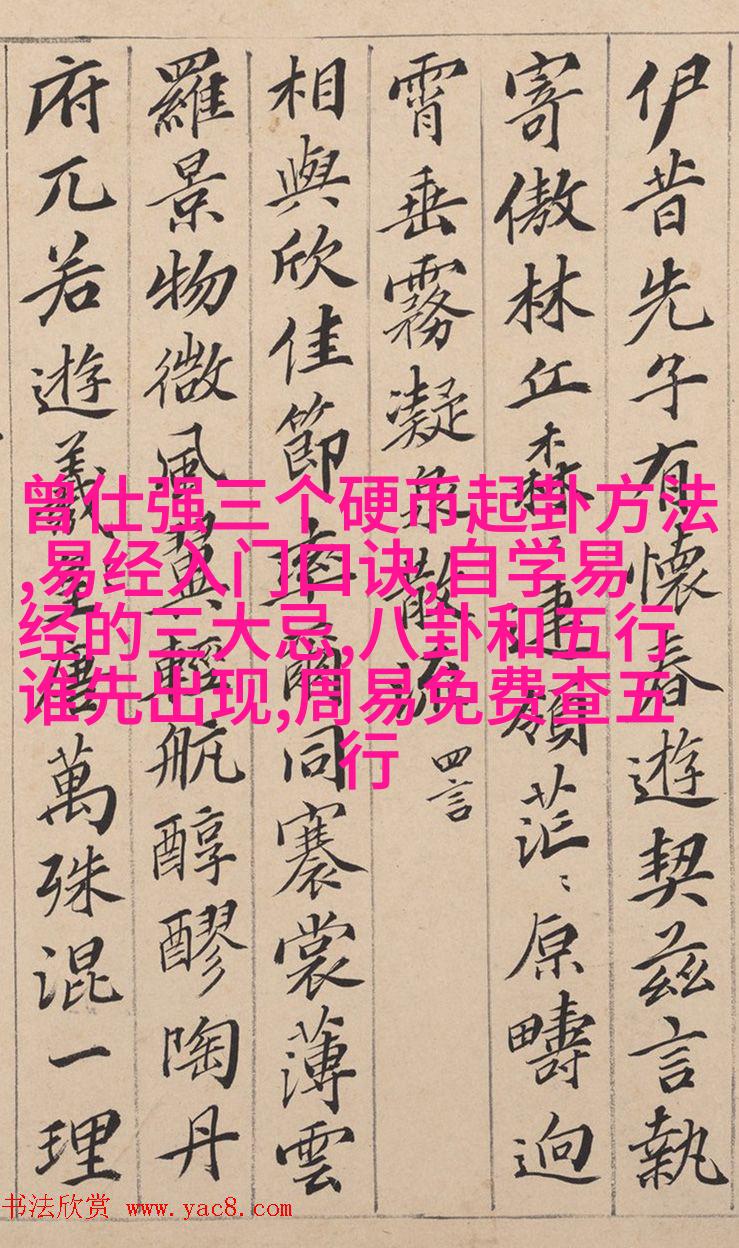 伊昔先子有懷春遊契茲言執
寄傲林丘森〻連嶺茫〻原疇迥
霄垂霧凝泉散流 四言
相與欣佳節率爾同褰裳薄雲
羅景物微風翼輕航醇醪陶丹
府兀若遊羲唐萬殊混一理
曾仕强三个硬币起卦方法
,易经入门口诀,自学易
经的三大忌,八卦和五行
谁先出现,周易免费查五
行
书法欣赏 www.yac8.com